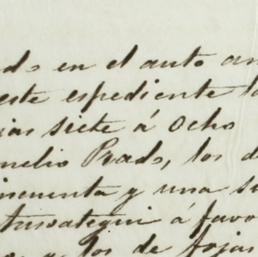 do en el auto an
este espediente la
jas siete á Ocho
nelio Prado, los d
incuenta y una su
á favo
y los de fojas